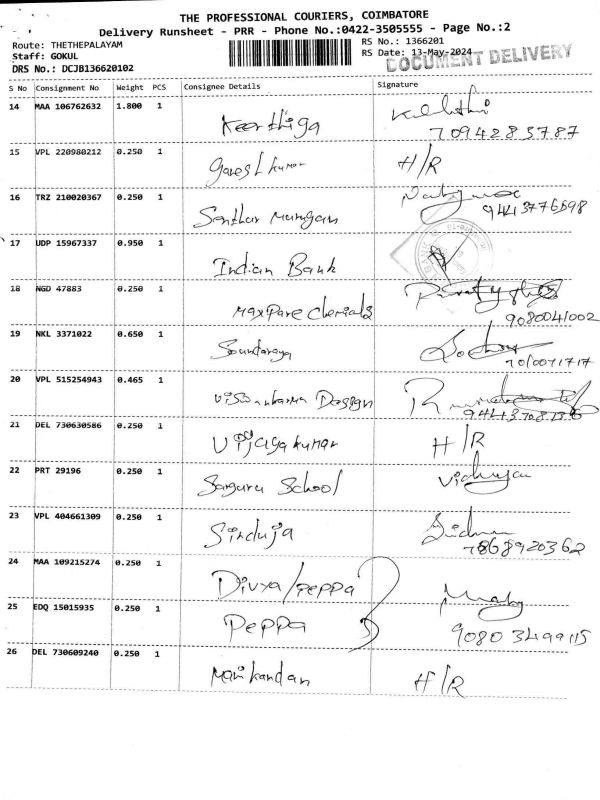 THE PROFESSIONAL COURIERS, COIMBATORE
Delivery Runsheet - PRR - Phone No.:0422-3505555 - Page No.:2
Route: THETHEPALAYAM
Staff: GOKUL
DRS No.: DCJB136620102
RS No.: 1366201
RS Date: 13-May-2024
DOCUMENT DELIVERY
S No Consignment No Weight PCS Consignee Details Signature
14 MAA 106762632 1.800 1 Keerthiga
7094283787
15 VPL 220980212 0.250 1 Ganesh kumar H/R
16 TRZ 210020367 0.250 1 Santhur Murugan
9443776598
17 UDP 15967337 0.950 1 Indian Bank
18 NGD 47883 0.250 1 Maxpare chemicals
9080041002
19 NKL 3371022 0.650 1 Soundaraya
7010071717
20 VPL 515254943 0.465 1 Viswakarma Design
21 DEL 730630586 0.250 1 Vijjayakumar H/R
22 PRT 29196 0.250 1 Sarguru School
23 VPL 404661309 0.250 1 Sinduja
7868920362
24 MAA 109215274 0.250 1 Divya/peppa
25 EDQ 15015935 0.250 1 Peppa
9080349915
26 DEL 730609240 0.250 1 Manikandan H/R